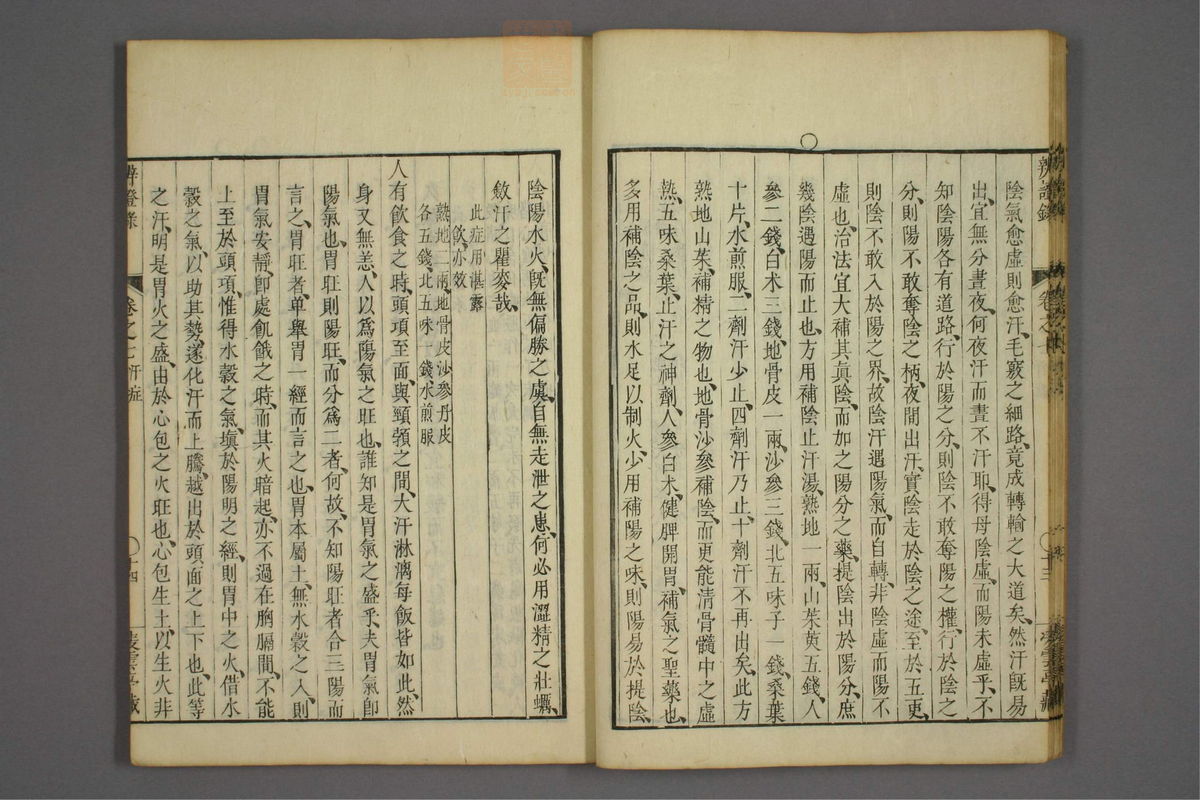 辨證錄
卷之七
十三
陰氣愈虛則愈汗、毛竅之細路、竟成轉輸之大道矣、然汗旣易
出、宜無分晝夜、何夜汗而晝不汗耶、得母陰虛、而陽未虛乎、不
知陰陽各有道路、行於陽之分、則陰不敢奪陽之權、行於陰之
分、則陽不敢奪陰之柄、夜間出汗、實陰走於陰之途、至於五更、
則陰不敢入於陽之界、故陰汗遇陽氣、而自轉、非陰虛而陽不
虛也、治法宜大補其眞陰、而加之陽分之藥、提陰出於陽分、庶
幾陰遇陽而止也、方用補陰止汗湯、熟地一兩、山茱萸五錢、人
參二錢、白术三錢、地骨皮一兩、沙參三錢、北五味子一錢、桑葉
十片、水煎服、二劑汗少止、四劑汗乃止、十劑汗不再出矣、此方
熟地山茱、補精之物也、地骨沙參補陰、而更能清骨髓中之虛
熱、五味桑葉、止汗之神劑、人參白术、健脾開胃、補氣之聖藥也、
多用補陰之品、則水足以制火、少用補陽之味、則陽易於提陰、
陰陽水火、旣無偏勝之虞、自無走泄之患、何必用澀精之牡蠣、
斂汗之瞿麥哉、
此症用湛露
飲、亦效
熟地二兩、地骨皮沙參丹皮
各五錢、北五味一錢水煎服
人有飲食之時、頭項至面、與頸頟之間、大汗淋漓每飯皆如此、然
身又無恙、人以爲陽氣之旺也、誰知是胃氣之盛乎、夫胃氣卽
陽氣也、胃旺則陽旺、而分爲二者、何故、不知陽旺者、合三陽而
言之、胃旺者、单舉胃一經而言之也、胃本屬土、無水穀之入、則
胃氣安靜、卽處飢餓之時、而其火暗起、亦不過在胸膈間、不能
上至於頭項、惟得水穀之氣、塡於陽明之經、則胃中之火、借水
穀之氣、以助其勢、遂化汗而上騰、越出於頭面之上下也、此等
之汗、明是胃火之盛、由於心包之火旺也、心包生土、以生火非
辨證錄
卷之七汗症
十四